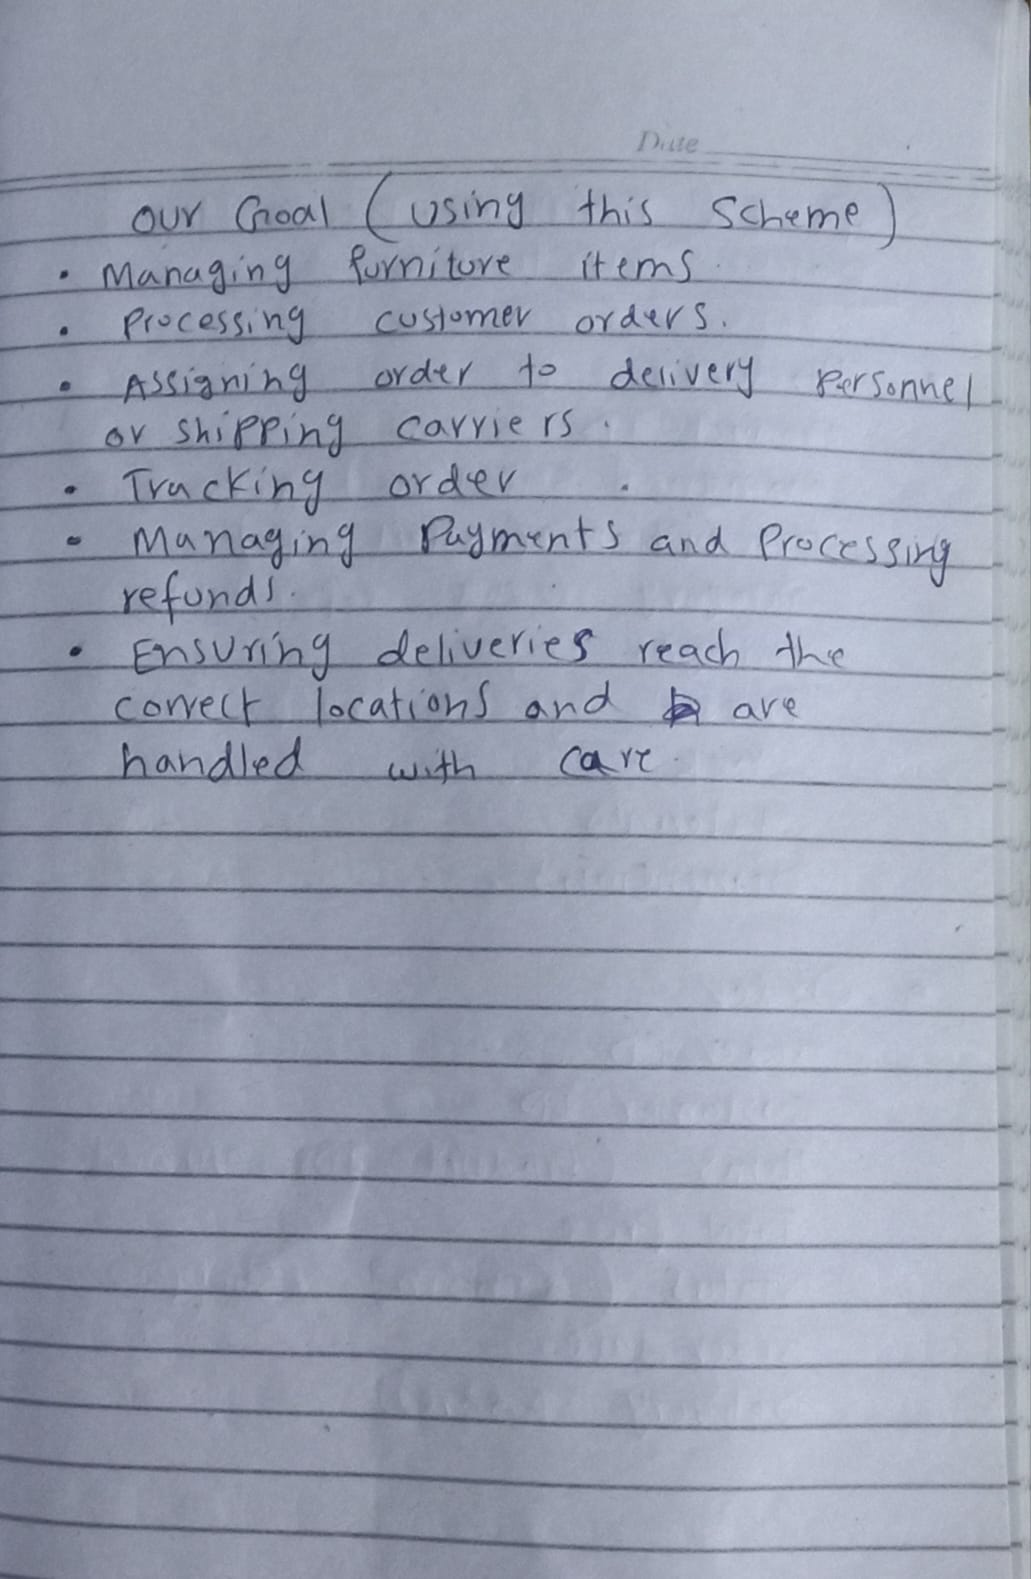 Date
Our Goal (Using this Scheme)
• Managing furniture items.
• Processing customer orders.
• Assigning order to delivery personnel
or shipping carriers.
• Tracking order .
• Managing Payments and Processing
refunds.
• Ensuring deliveries reach the
correct locations and are
handled with care.